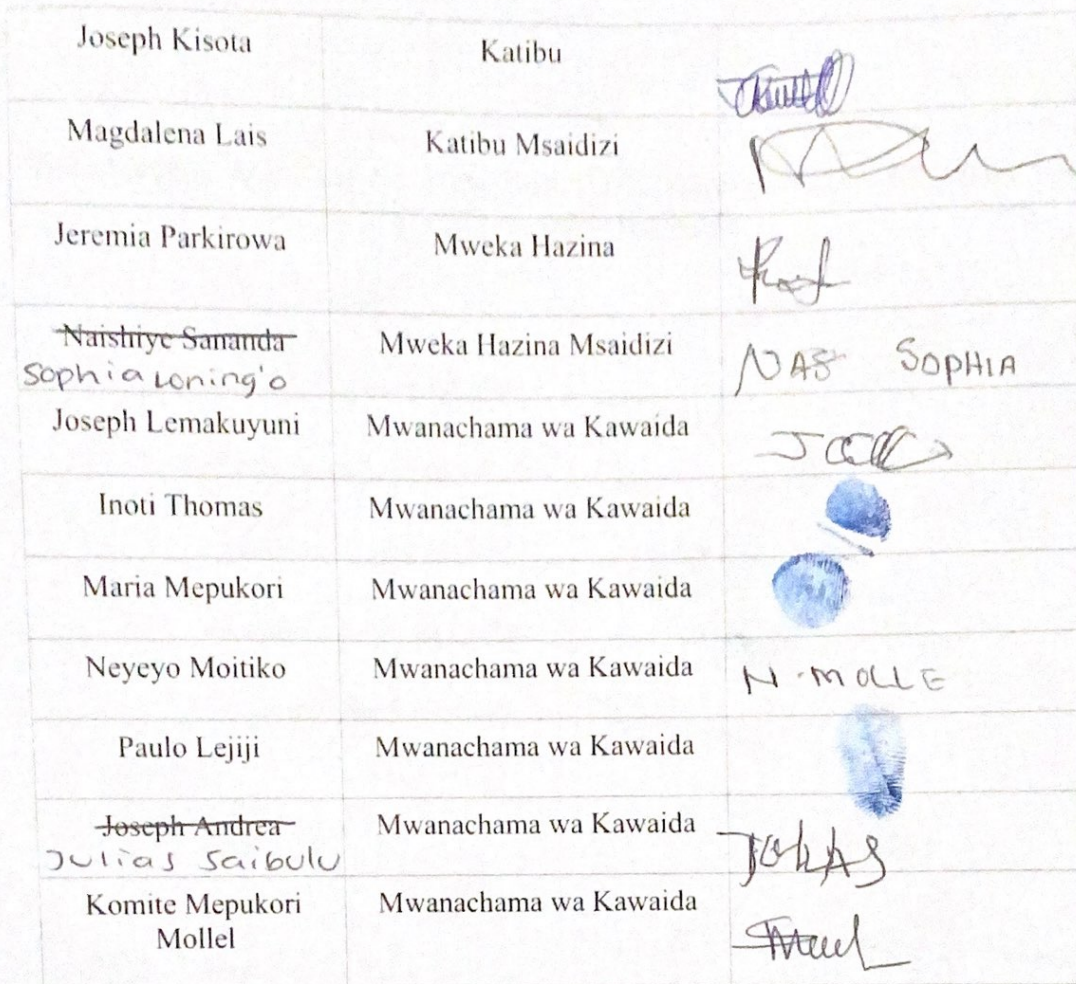 Joseph Kisota Katibu
Magdalena Lais Katibu Msaidizi
Jeremia Parkirowa Mweka Hazina
Naishiye Sananda Mweka Hazina Msaidizi NAS SOPHIA
Sophia Loning'o
Joseph Lemakuyuni Mwanachama wa Kawaida
Inoti Thomas Mwanachama wa Kawaida
Maria Mepukori Mwanachama wa Kawaida
Neyeyo Moitiko Mwanachama wa Kawaida N.MOLLE
Paulo Lejiji Mwanachama wa Kawaida
Joseph Andrea Mwanachama wa Kawaida
Julias Saibulu
Komite Mepukori Mwanachama wa Kawaida
Mollel